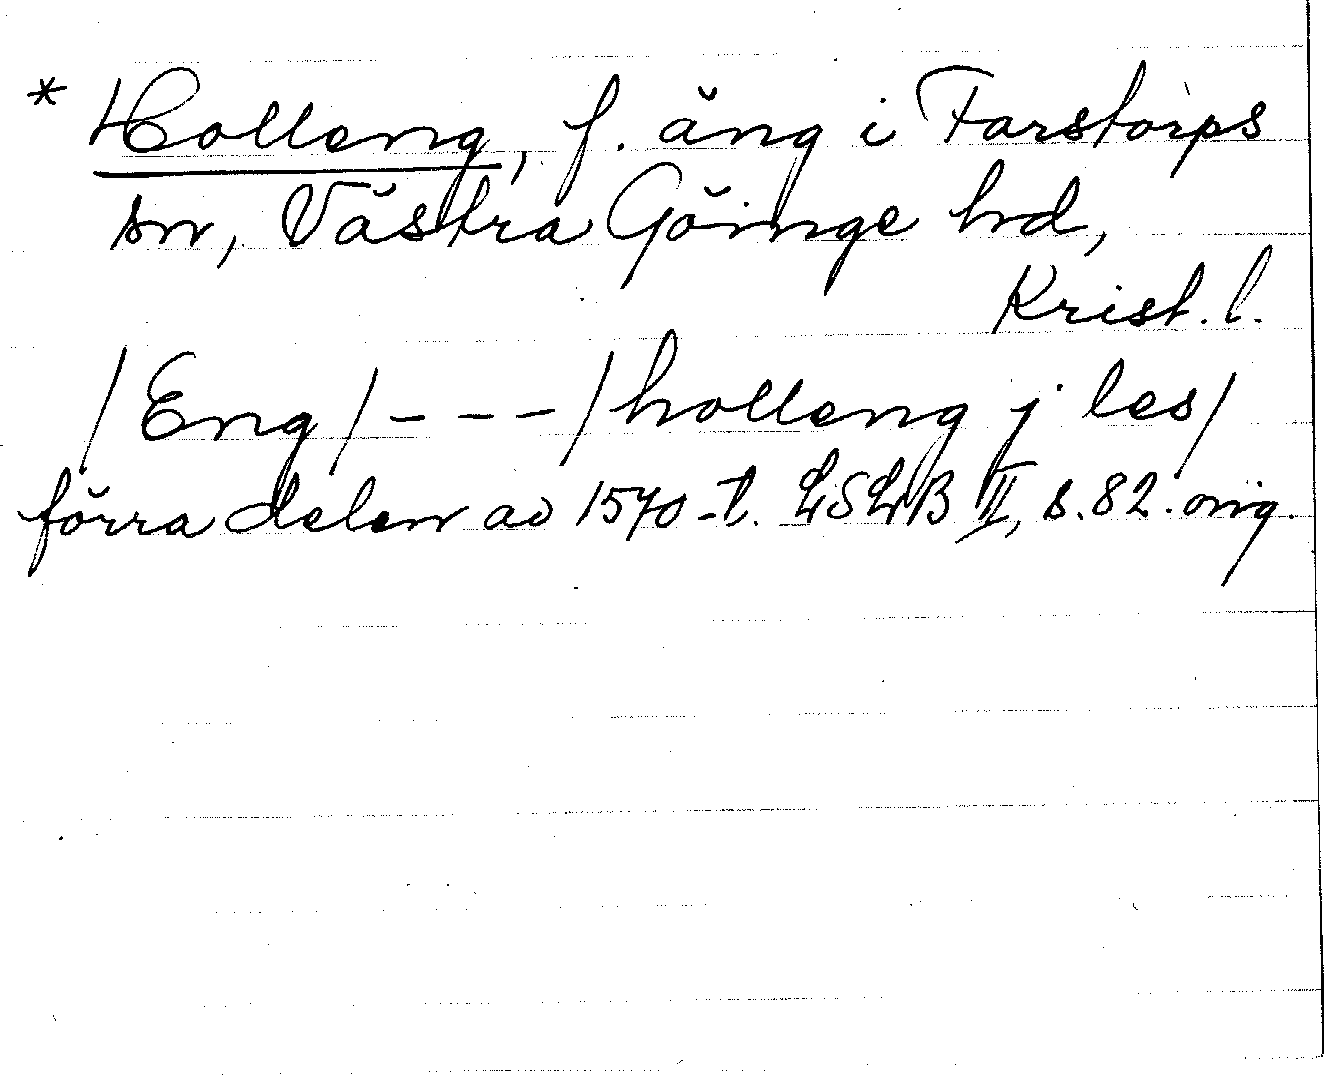 * Holleng, f. äng i Farstorps
sn, Västra Göinge hd,
Krist. l.
/Eng/ - - - /holleng j les/
förra delen av 1570-t. LSLB II, s. 82. orig.